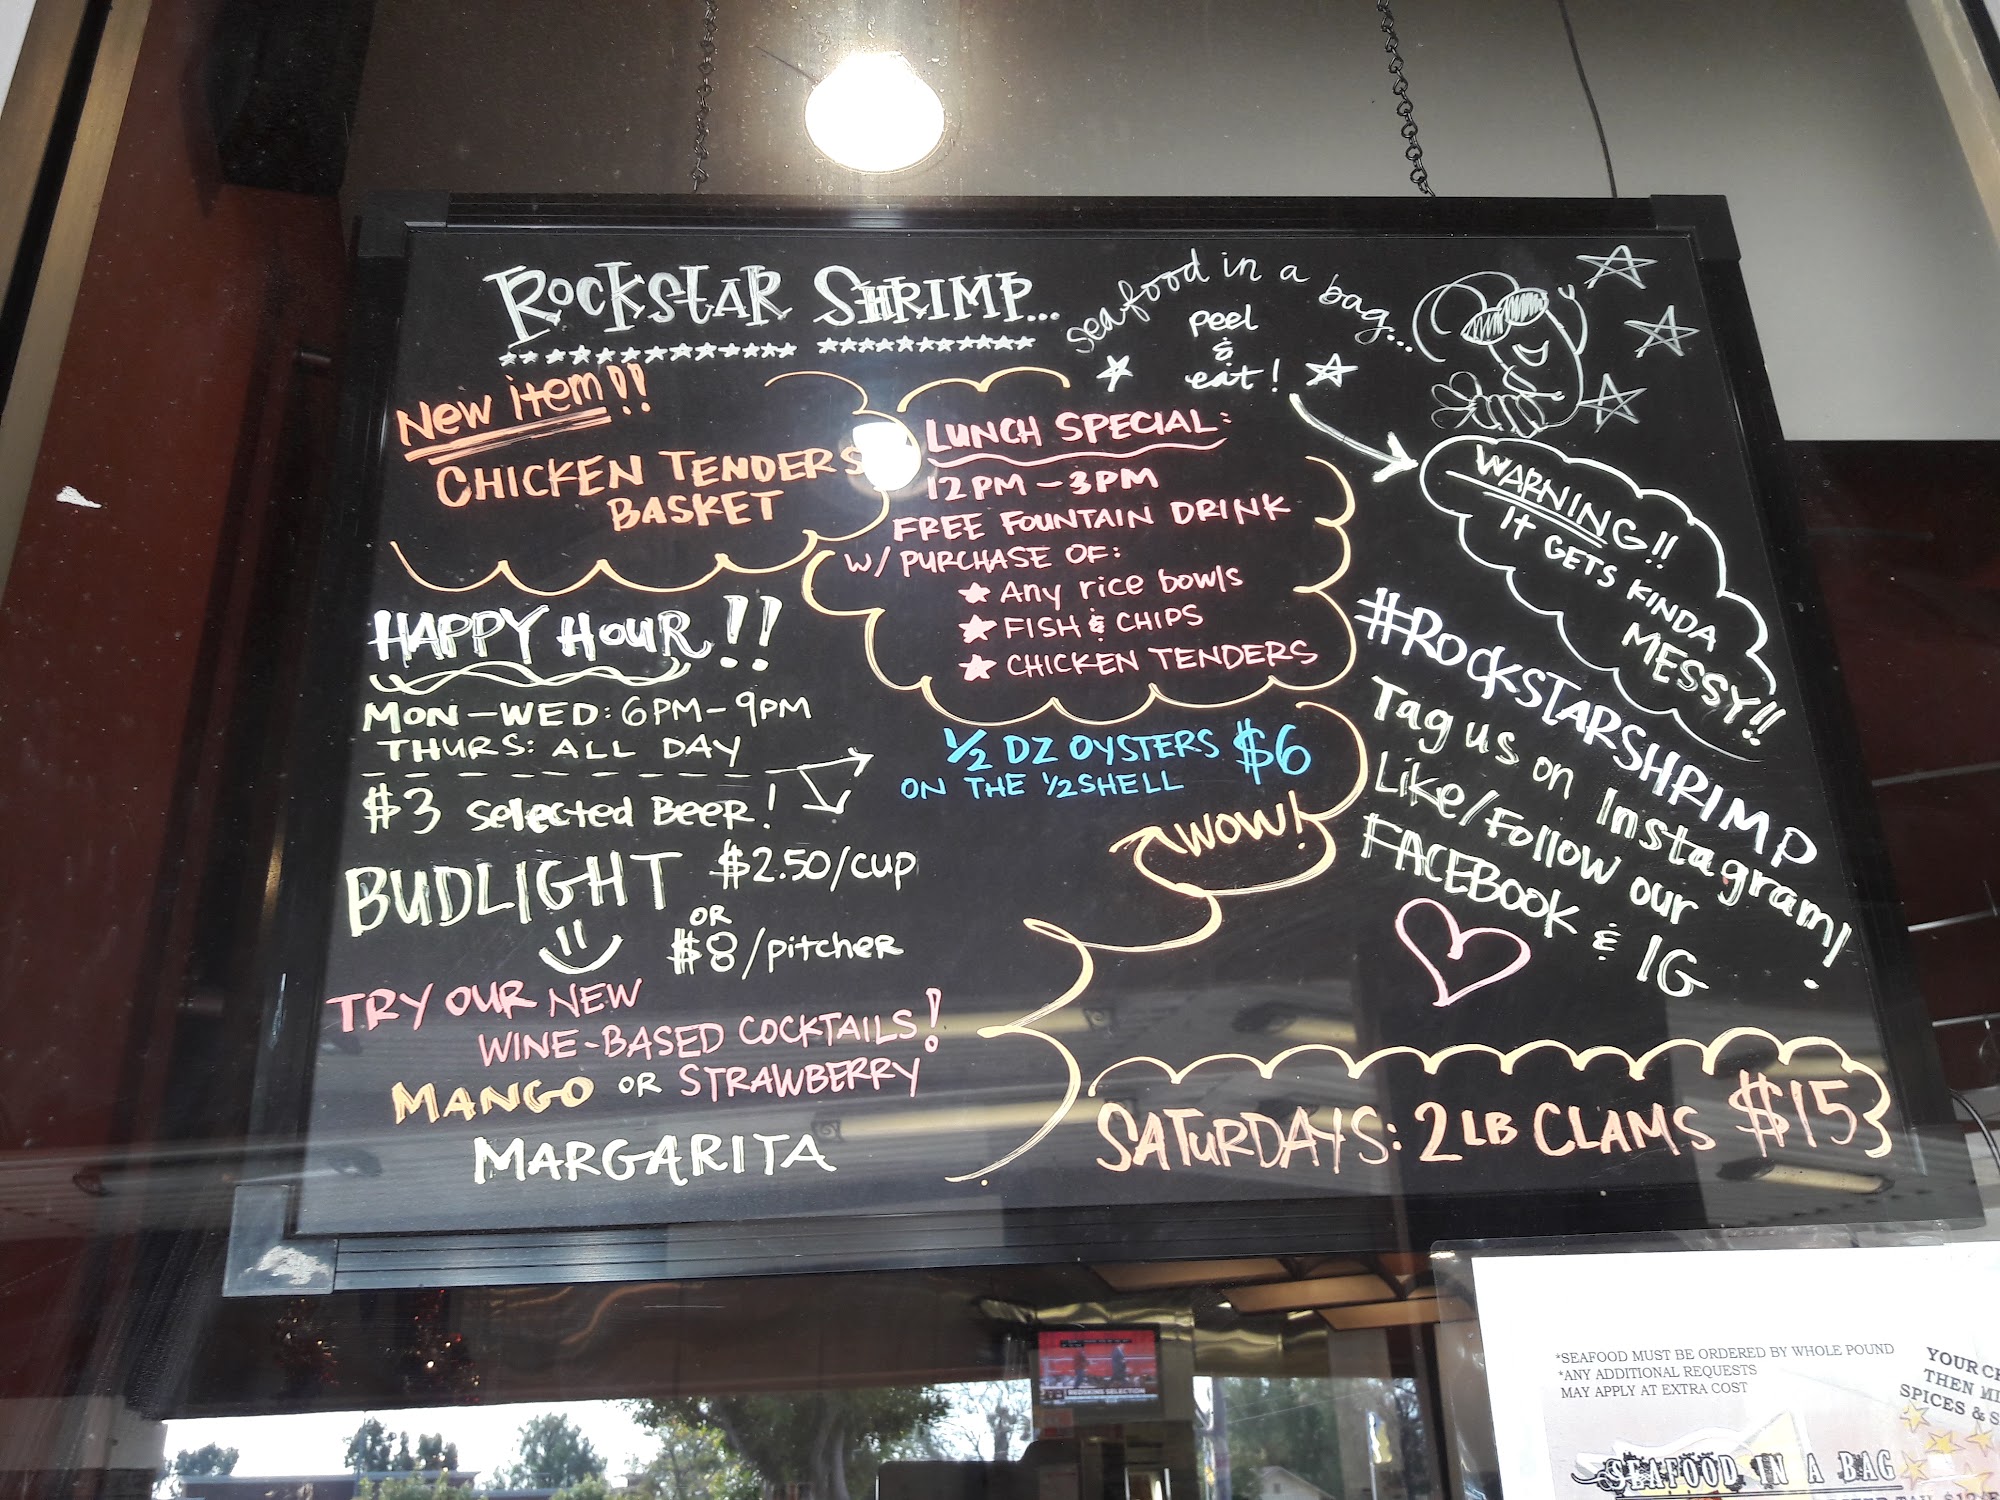 ROCKSTAR SHRIMP...
seafood in a bag...
peel
&
eat!
New item!!
CHICKEN TENDERS
BASKET
LUNCH SPECIAL:
12PM-3PM
FREE FOUNTAIN DRINK
W/ PURCHASE OF:
Any rice bowls
FISH & CHIPS
CHICKEN TENDERS
WARNING!!
IT GETS KINDA
MESSY!!
HAPPY HOUR!!
MON-WED: 6PM-9PM
THURS: ALL DAY
$3 selected BEER!
1/2 DZ OYSTERS $6
ON THE 1/2 SHELL
WOW!
BUDLIGHT $2.50/cup
OR
$8/pitcher
TRY OUR NEW
WINE-BASED COCKTAILS!
MANGO OR STRAWBERRY
MARGARITA
#ROCKSTARSHRIMP
Tag us on Instagram!
Like/Follow our
FACEBOOK & IG
SATURDAYS: 2 LB CLAMS $15
REDSKINS SELECTION
*SEAFOOD MUST BE ORDERED BY WHOLE POUND
*ANY ADDITIONAL REQUESTS
MAY APPLY AT EXTRA COST
YOUR
THEN
SPICES &
SEAFOOD IN A BAG